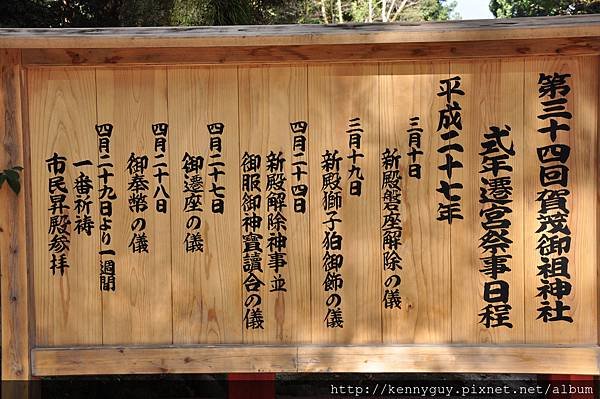 第三十四回賀茂御祖神社
式年遷宮祭事日程
平成二十七年
三月十日
新殿磐座解除の儀
三月十九日
新殿獅子狛御飾の儀
四月二十四日
新殿解除神事並
御服御神寶讀合の儀
四月二十七日
御遷座の儀
四月二十八日
御奉幣の儀
四月二十九日より一週間
一番祈祷
市民昇殿参拝
http://kennyguy.pixnet.net/album